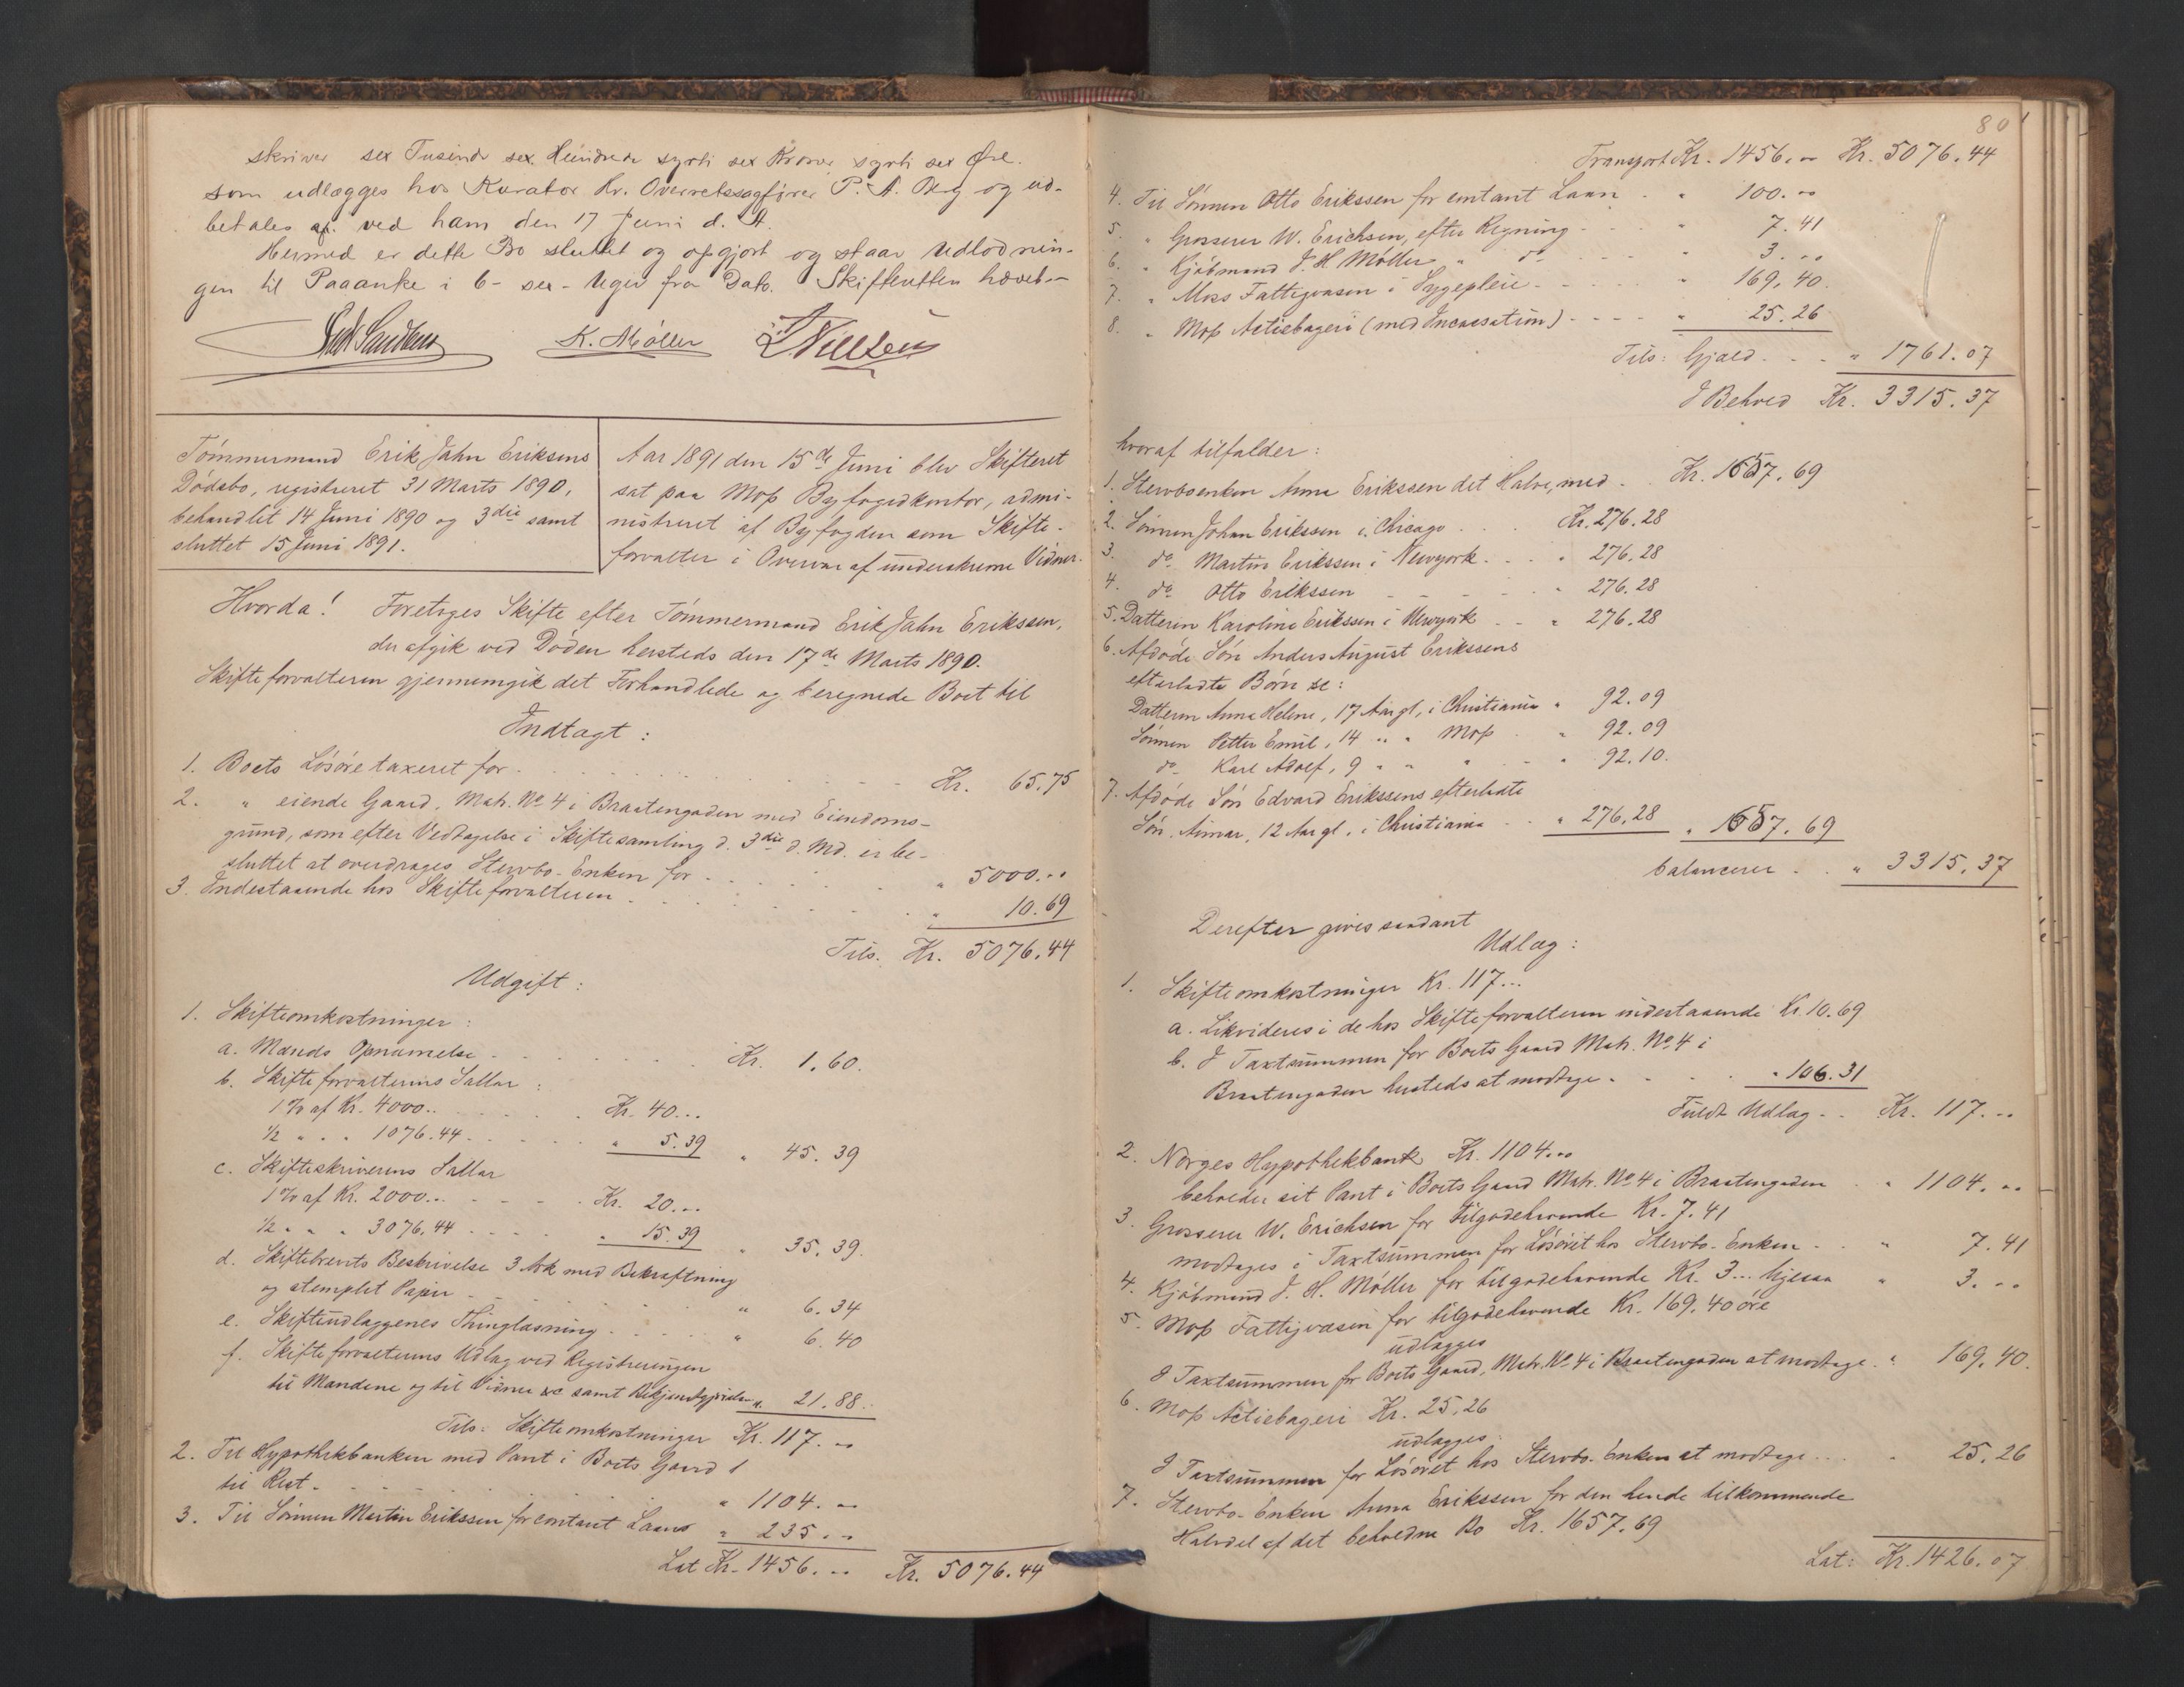 skriver sex Tusinde sex Hundrede syrti sex Kroner syrti sex Øre.
som udlægges hos Kurator Hr. Overretssagfører P. A. Berg og ud-
betales af ved ham den 17 Juni d. A.
Hermed er dette Bo sluttet og opgjort og staar Udlodnin-
gen til Paaanke i 6- sex- Uger fra Dato. Skifteretten hævet.-
K. Møller
Nielsen
Tömmermand Erik Jahn Eriksens
Dödsbo, registreret 31 Marts 1890,
behandlet 14 Juni 1890 og 3die samt
sluttet 15 Juni 1891.
Aar 1891 den 15de Juni blev Skifteret
sat paa Moss Byfogedkontor, admi-
nistreret af Byfogden som Skifte-
forvalter i Overvær af underskrevne Vidner.
Hvorda! Foretoges Skifte efter Tömmermand Erik Jahn Erikssen,
der afgik ved Döden hersteds den 17de Marts 1890.
Skifteforvalteren gjennemgik det Forhandlede og beregnede Boet til
Indtægt:
1. Boets Lösöre taxeret for . . . Kr. 65.75
2. " eiende Gaard, Matr. No 4 i Braatengaden med Eiendoms-
grund, som efter Vedtagelse i Skiftesamling d. 3die d. Md. er be-
sluttet at overdrages Stervbo-Enken for . . . " 5000...
3. Indestaaende hos Skifteforvalteren . . . " 10.69
Tils. Kr. 5076.44
Udgift:
1. Skifteomkostninger:
a. Mænds Opnævnelse . . . Kr. 1.60.
b. Skifteforvalterens Sallar:
1% af Kr. 4000.. . . . Kr. 40...
½ " . . 1076.44 . . . " 5.39 " 45.39
c. Skifteskriverens Sallar
1% af Kr. 2000.. . . . Kr. 20...
½ " . . 3076.44 . . . " 15.39 " 35.39.
d. Skiftebrevets Beskrivelse 3 Ark med Bekræftning
og stemplet Papir . . . " 6.34
e. Skifteudlæggenes Thinglæsning . . . " 6.40
f. Skifteforvalterens Udlæg ved Registreringen
til Mændene og til Vidner &c samt 21.88.
Tils: Skifteomkostninger Kr. 117...
2. Til Hypothekbanken med Pant i Boets Gaard
til Rest . . . " 1104...
3. Til Sönnen Martin Erikssen for contant Laan " 235...
Lat Kr. 1456... Kr. 5076.44
80
Transport Kr. 1456... Kr. 5076.44
4. Til Sönnen Otto Erikssen for contant Laan . " 100...
5. " Grosserer W. Erichsen, efter Regning . . . " 7.41
6. " Kjöbmand J. H Möller " do . . . " 3...
7. " Moss Fattigvæsen i Sygepleie . . . " 169.40.
8. " Moss Actiebageri (med Incassation) . . . " 25.26
Tils: Gjæld . . . " 1761.07
I Behold Kr. 3315.37
hvoraf tilfalder:
1. Stervboenken Anna Erikssen det Halve, med . Kr. 1657.69
2. Sönnen Johan Erikssen i Chicago . . . Kr. 276.28
3. do Martin Erikssen i Newyork . . . " 276.28
4. do Otto Erikssen . . . " 276.28
5. Datteren Karoline Erikssen i Newyork . . " 276.28
6. Afdöde Sön Anders August Erikssens
efterladte Börn se:
Datteren Anna Helene, 17 Aar gl, i Christiania " 92.09
Sönnen Petter Emil, 14 " " Moss . " 92.09
do Karl Adolf, 9 " " " . " 92.10.
7. Afdöde Sön Edvard Erikssens efterladte
Sön, 12 Aar gl. i Christiania . . " 276.28 " 1657.69
balancerer . . " 3315.37
Derefter gives saadant
Udlæg:
1. Skifteomkostninger Kr. 117...
a. Likvideres i de hos Skifteforvalteren indestaaende Kr. 10.69
b. I Taxtsummen for Boets Gaard Matr. No 4 i
Braatengaden hersteds at modtage . . . " 106.31
Fuldt Udlæg . . Kr. 117...
2. Norges Hypothekbank Kr. 1104...
beholder sit Pant i Boets Gaard Matr. No 4 i Braatengaden . " 1104...
3. Grosserer W. Erichsen for tilgodehavende Kr. 7.41
modtages i Taxtsummen for Lösöret hos Stervbo-Enken . . " 7.41
4. Kjöbmand J. H. Möller for tilgodehavende Kr. 3... ligesaa " 3...
5. Moss Fattigvæsen for tilgodehavende Kr. 169.40 öre
udlægges
I Taxtsummen for Boets Gaard, Matr. No 4 i Braatengaden at modtage . " 169.40.
6. Moss Actiebageri Kr. 25.26
udlægges:
I Taxtsummen for Lösöret hos Stervbo-Enken at modtage . . . " 25.26
7. Stervbo-Enken Anna Erikssen for den hende tilkommende
Halvdel af det beholdne Bo Kr. 1657.69
Lat: Kr. 1426.07